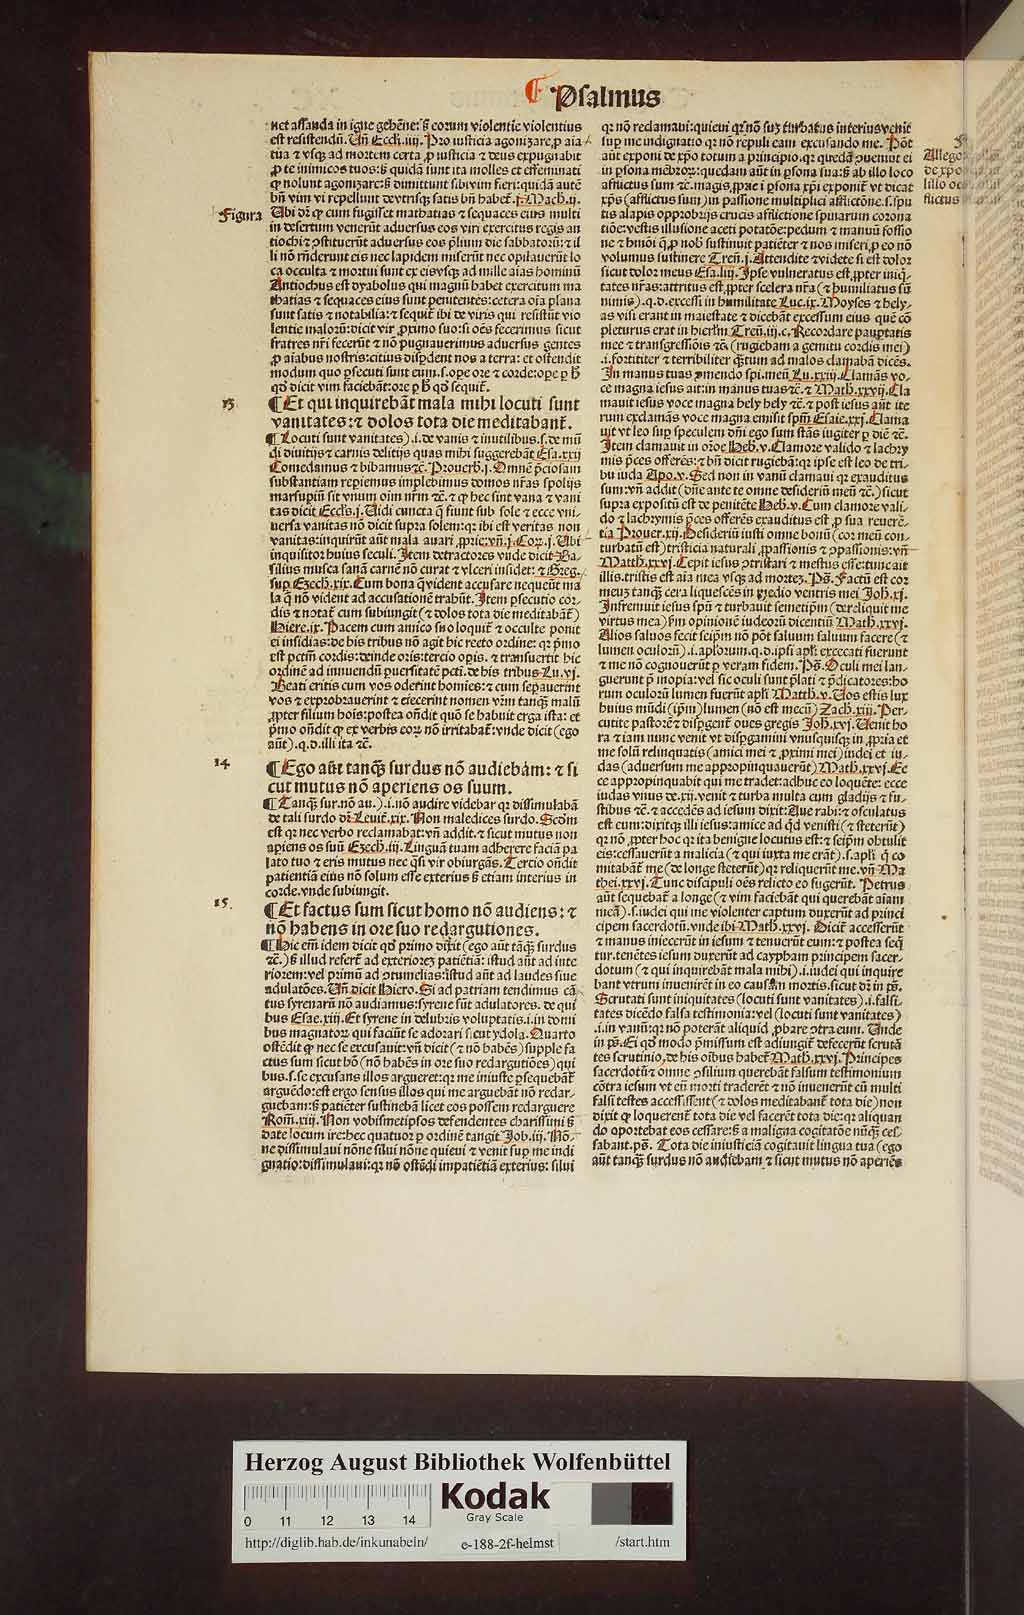 Psalmus
net assanda in igne gehẽne: sʒ eorum violentie violentius
est resistendũ. Vñ Eccli. iiij. Pro iusticia agonizare, ꝓ aĩa
tua ⁊ vsqʒ ad mortem certa ꝓ iusticia ⁊ deus expugnabit
ꝓ te inimicos tuos: sʒ quidã sunt ita molles et effeminati
ꝙ nolunt agonizare: sʒ dimittunt sibi vim fieri: quidã autẽ
bñ vim vi repellunt de vtrisqʒ satis bñ habet̃. j. Mach. ij.
Figura
Ubi dr̃ ꝙ cum fugisset mathatias ⁊ sequaces eius multi
in desertum venerũt aduersus eos viri exercitus regis an
tiochi ⁊ ꝯstituerũt aduersus eos p̃lium die sabbatorũ: ⁊ il
li nõ rñderunt eis nec lapidem miserũt nec opilauerũt lo
ca occulta ⁊ mortui sunt ex eis vsqʒ ad mille aĩas hominũ
Antiochus est dyabolus qui magnũ habet exercitum ma
thatias ⁊ sequaces eius sunt penitentes: cetera oĩa plana
sunt satis ⁊ notabilia: ⁊ sequit̃ ibi de viris qui resistũt vio
lentie malorũ: dicit vir ꝓximo suo: si oẽs fecerimus sicut
fratres nr̃i fecerũt ⁊ nõ pugnauerimus aduersus gentes
ꝓ aĩabus nostris: citius disp̃dent nos a terra: et ostendit
modum quo ꝑsecuti sunt eum. s. ope ore ⁊ corde: ope ꝑ hʒ
qd̃ dicit vim faciebãt: ore ꝑ hʒ qd̃ sequit̃.
13
¶ Et qui inquirebãt mala mihi locuti sunt
vanitates: ⁊ dolos tota die meditabant̃.
¶ Locuti sunt vanitates). i. de vanis ⁊ inutilibus. s. de mũ
di diuitijs ⁊ carnis delitijs quas mihi suggerebãt Esa. xxij
Comedamus ⁊ bibamus ⁊c̃. Prouerb. j. Omnẽ p̃ciosam
substantiam repiemus implebimus domos nr̃as spolijs
marsupiũ sit vnum oĩm nr̃m ⁊c̃. ⁊ ꝙ hec sint vana ⁊ vani
tas dicit Eccl̃s. j. Vidi cuncta q̃ fiunt sub sole ⁊ ecce vni
uersa vanitas nõ dicit supra solem: qꝛ ibi est veritas non
vanitas: inquirũt aũt mala auari ꝓprie: vñ. j. Coꝝ. j. Ubi
inquisitor huius seculi. Item detractores vnde dicit Ba
silius musca sanã carnẽ nõ curat ⁊ vlceri insidet: ⁊ Greg.
sup Ezech. xix. Cum bona q̃ vident accusare nequeũt ma
la q̃ nõ vident ad accusationẽ trahũt. Item ꝑsecutio cor
dis ⁊ notat̃ cum subiungit (⁊ dolos tota die meditabãt̃)
Hiere. ix. Pacem cum amico suo loquit̃ ⁊ occulte ponit
ei insidias: de his tribus nõ agit hic recto ordine: qꝛ p̃mo
est pctm̃ cordis: deinde oris: tercio opis. ⁊ transuertit hic
ordinẽ ad innuendũ ꝑuersitatẽ pcti. de his tribus Lu. vj.
Beati eritis cum vos oderint homines: ⁊ cum sepauerint
vos ⁊ exprobrauerint ⁊ eiecerint nomen vr̃m tanqʒ malũ
ꝓpter filium hois: postea oñdit quõ se habuit erga ista: et
p̃mo oñdit ꝙ ex verbis eoꝝ nõ irritabat̃: vnde dicit (ego
aũt). q. d. illi ita ⁊c̃.
14
¶ Ego aũt tanqʒ surdus nõ audiebam: ⁊ si
cut mutus nõ aperiens os suum.
¶ Tanqʒ sur. nõ au.). i. nõ audire videbar qꝛ dissimulabã
de tali surdo dr̃ Leuit̃. xix. Non maledices surdo. Scd̃m
est qꝛ nec verbo reclamabat: vñ addit. ⁊ sicut mutus non
apiens os suũ Ezech. iij. Linguã tuam adherere faciã pa
lato tuo ⁊ eris mutus nec q̃si vir obiurgãs. Tercio oñdit
patientiã eius nõ solum esse exterius sʒ etiam interius in
corde. vnde subiungit.
15.
¶ Et factus sum sicut homo nõ audiens: ⁊
nõ habens in ore suo redargutiones.
¶ Hic em̃ idem dicit qd̃ primo dixit (ego aũt tãqʒ surdus
⁊c̃.) sʒ illud refert̃ ad exterioreʒ patiẽtiã: istud aũt ad inte
riorem: vel primũ ad ꝯtumelias: istud aũt ad laudes siue
adulatões. Vñ dicit Hiero. Si ad patriam tendimus cã
tus syrenarũ nõ audiamus: syrene sũt adulatores. de qui
bus Esae. xiij. Et syrene in delubris voluptatis. i. in domi
bus magnatoꝝ qui faciũt se adorari sicut ydola. Quarto
ostẽdit ꝙ nec se excusauit: vñ dicit (⁊ nõ habẽs) supple fa
ctus sum sicut hõ (nõ habẽs in ore suo redargutiões) qui
bus. s. se excusans illos argueret: qꝛ me iniuste ꝑsequebãt̃
arguẽdo: est ergo sensus illos qui me arguebãt nõ redar-
guebam: sʒ patiẽter sustinebã licet eos possem redarguere
Rom̃. xij. Non vobismetipsos defendentes charissimi sʒ
date locum ire: hec quatuor ꝑ ordinẽ tangit Job. iij. Nõ-
ne dissimulaui nõne silui nõne quieui ⁊ venit sup me indi
gnatio: dissimulaui: qꝛ nõ ostẽdi impatiẽtiã exterius: silui
qꝛ nõ reclamaui: quieui qꝛ nõ suʒ turbatus interius venit
sup me indignatio qꝛ nõ repuli eam excusando me. Põt
aũt exponi de xp̃o totum a principio. qꝛ quedã ꝯueniut ei
in ꝑsona mẽbroꝝ: quedam aũt in ꝑsona sua: sʒ ab illo loco
afflictus sum ⁊c̃. magis ꝓprie i ꝑsona xp̃i exponit̃ vt dicat
xp̃s (afflictus sum) in passione multiplici afflictõne. s. spu
tis alapis opprobrijs crucis afflictione spinarum corona
tiõe: vestis illusione aceti potatõe: pedum ⁊ manuũ fossio
ne ⁊ hmõi q̃ ꝓ nob̃ sustinuit patiẽter ⁊ nos miseri ꝓ eo nõ
volumus sustinere Treñ. j. Attendite ⁊ videte si est dolor
sicut dolor meus Esa. liij. Ipse vulneratus est ꝓpter iniq̃-
tates nr̃as: attritus est ꝓpter scelera nr̃a (⁊ humiliatus sũ
nimis). q. d. excessi in humilitate Luc. ix. Moyses ⁊ hely-
as visi erant in maiestate ⁊ dicebãt excessum eius quẽ cõ
pleturus erat in hierl̃m Treñ. iij. c. Recordare paupertatis
mee ⁊ transgressiõis ⁊c̃ (rugiebam a gemitu cordis mei)
. i. fortititer ⁊ terribiliter q̃tum ad malos clamabã dicẽs.
In manus tuas ꝯmendo spi. meũ Lu. xxiij. Clamãs vo-
ce magna iesus ait: in manus tuas ⁊c̃. ⁊ Math. xxvij. Cla
mauit iesus voce magna hely hely ⁊c̃. ⁊ post iesus aũt ite
rum exclamãs voce magna emisit spm̃ Esaie. xxj. Clama
uit vt leo sup speculem dñi ego sum stãs iugiter ꝑ diẽ ⁊c̃.
Item clamauit in oroẽ Heb. v. Clamore valido ⁊ lachry
mis p̃ces offerẽs: ⁊ bñ dicit rugiebã: qꝛ ipse est leo de tri-
bu iuda Apo. v. Sed non in vanũ clamaui qꝛ exauditus
sum: vñ addit (dñe ante te omne desideriũ meũ ⁊c̃.) sicut
supra expositũ est de penitẽte Heb. v. Cum clamore vali-
do ⁊ lachrymis p̃ces offerẽs exauditus est ꝓ sua reuerẽ-
tia Prouer. xij. Desideriũ iusti omne bonũ (cor meũ con-
turbatũ est) tristicia naturali ꝓpassionis ⁊ ꝯpassionis: vñ
Matth. xxvj. Cepit iesus ꝯtristari ⁊ mestus esse: tunc ait
illis. tristis est aĩa mea vsqʒ ad morteʒ. Ps̃. Factũ est cor
meuʒ tanqʒ cera liquescẽs in medio ventris mei Joh. xj.
Infremuit iesus spũ ⁊ turbauit semetipm̃ (dereliquit me
virtus mea) s̃m opinionẽ iudeorũ dicentiũ Math. xxvj.
Alios saluos fecit seipm̃ nõ põt saluum saluum facere (⁊
lumen oculorũ). i. apl̃orum. q. d. ipsi apl̃i excecati fuerunt
⁊ me nõ cognouerũt ꝑ veram fidem. Ps̃. Oculi mei lan-
guerunt p̃ inopia: vel sic oculi sunt p̃lati ⁊ p̃dicatores: ho
rum oculorũ lumen fuerũt apl̃i Matth. v. Vos estis lux
huius mũdi (ip̃m) lumen (nõ est mecũ) Zach. xiij. Per-
cutite pastorẽ ⁊ disꝑgent̃ oues gregis Joh. xvj. Venit ho
ra ⁊ iam nunc venit vt disꝑgamini vnusquisqʒ in ꝓpria et
me solũ relinquatis (amici mei ⁊ ꝓximi mei) iudei et iu-
das (aduersum me appropinquauerũt) Math. xxvj. Ec
ce appropinquabit qui me tradet: adhuc eo loquẽte: ecce
iudas vnus de. xij. venit ⁊ turba multa cum gladijs ⁊ fu-
stibus ⁊c̃. ⁊ accedẽs ad iesum dixit: Aue rabi: ⁊ osculatus
est eum: dixitqʒ illi iesus: amice ad qd̃ venisti (⁊ steterũt)
qꝛ nõ ꝓpter hoc qꝛ ita benigne locutus est: ⁊ seipm̃ obtulit
eis: cessauerũt a malicia (⁊ qui iuxta me erãt). s. apl̃i q̃ co
mitabãt̃ me (de longe steterũt) qꝛ reliquerũt me. vñ Ma
thei. xxvj. Tunc discipuli oẽs relicto eo fugerũt. Petrus
aũt sequebat̃ a longe (⁊ vim faciebãt qui querebãt aĩam
meã). s. iudei qui me violenter captum duxerũt ad princi
cipem sacerdotũ. vnde ibi Math. xxvj. Dicit̃ accesserũt
⁊ manus iniecerũt in iesum ⁊ tenuerũt eum: ⁊ postea seq̃
tur. tenẽtes iesum duxerũt ad caypham principem sacer-
dotum (⁊ qui inquirebãt mala mihi). i. iudei qui inquire
bant vtrum inuenirẽt in eo causam mortis. sicut dr̃ in ps̃.
Scrutati sunt iniquitates (locuti sunt vanitates). i. falsi-
tates dicẽdo falsa testimonia: vel (locuti sunt vanitates)
. i. in vanũ: qꝛ nõ poterãt aliquid ꝓbare ꝯtra eum. Unde
in ps̃. Ei qd̃ modo p̃missum est adiungit̃ defecerũt scrutã
tes scrutinio, de his oĩbus habet̃ Math. xxvj. Principes
sacerdotũ ⁊ omne ꝯsilium querebãt falsum testimonium
cõtra iesum vt eũ morti traderẽt ⁊ nõ inuenerũt cũ multi
falsi testes accessissent (⁊ dolos meditabant̃ tota die) non
dixit ꝙ loquerent̃ tota die vel facerẽt tota die: qꝛ aliquan
do oportebat eos cessare: sʒ a maligna cogitatõe nũqʒ ces-
sabant. ps̃. Tota die iniusticiã cogitauit lingua tua (ego
aũt tanqʒ surdus nõ audiebam ⁊ sicut mutus nõ aperiẽs
Herzog August Bibliothek Wolfenbüttel
Kodak
Gray Scale
0 11 12 13 14
http://diglib.hab.de/inkunabeln/ e-188-2f-helmst /start.htm